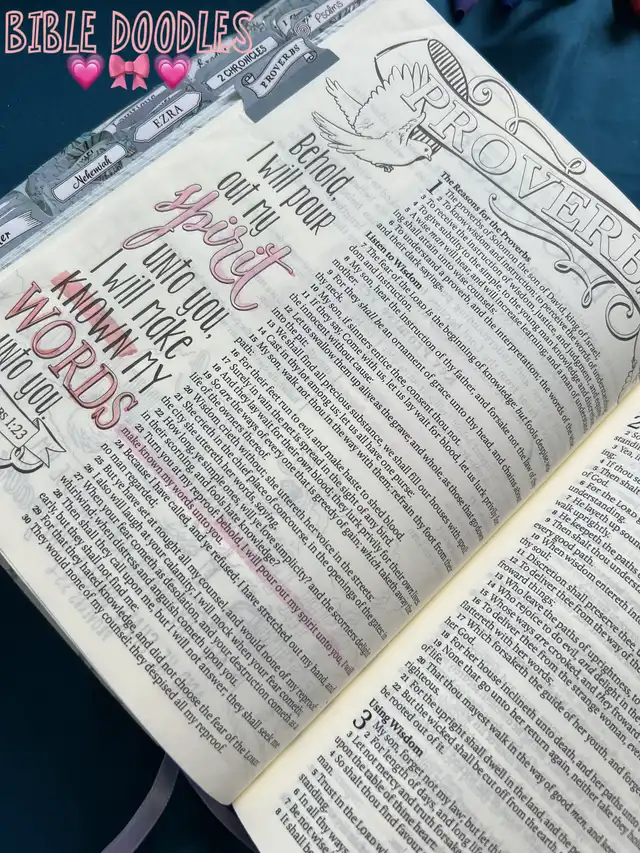 BIBLE DOODLES
Psalms
2 CHRONICLES
PROVERBS
EZRA
Nehemiah
her
Behold
I will pour
out my
spirit
unto you
I will make
KNOWN MY
WORDS
unto you
BS 1:23
PROVERB
The Reasons for the Proverbs
1 The proverbs of Solomon the son of David, king of Israel;
2 To know wisdom and instruction; to perceive the words of
3 To receive the instruction of wisdom, justice, and judgment,
4 To give subtilty to the simple, to the young man knowledge and
5 A wise man will hear, and will increase learning; and a man of
ing shall attain unto wise counsels:
6 To understand a proverb, and the interpretation; the words of the
and their dark sayings.
Listen to Wisdom
7 The fear of the LORD is the beginning of knowledge: but fools despise
dom and instruction.
8 My son, hear the instruction of thy father, and forsake not the law of
mother:
9 For they shall be an ornament of grace unto thy head, and chains about
thy neck.
10 My son, if sinners entice thee, consent thou not.
11 If they say, Come with us, let us lay wait for blood, let us lurk privily for
the innocent without cause:
12 Let us swallow them up alive as the grave; and whole, as those that go down
into the pit:
13 We shall find all precious substance, we shall fill our houses with spoil:
14 Cast in thy lot among us; let us all have one purse:
15 My son, walk not thou in the way with them; refrain thy foot from their
path:
16 For their feet run to evil, and make haste to shed blood.
17 Surely in vain the net is spread in the sight of any bird.
18 And they lay wait for their own blood; they lurk privily for their own lives.
19 So are the ways of every one that is greedy of gain; which taketh away the
life of the owners thereof.
20 Wisdom crieth without; she uttereth her voice in the streets:
21 She crieth in the chief place of concourse, in the openings of the gates: in
the city she uttereth her words, saying,
22 How long, ye simple ones, will ye love simplicity? and the scorners delight
in their scorning, and fools hate knowledge?
23 Turn you at my reproof: behold, I will pour out my spirit unto you, I will
make known my words unto you.
24 Because I have called, and ye refused; I have stretched out my hand, and
no man regarded;
25 But ye have set at nought all my counsel, and would none of my reproof:
26 I also will laugh at your calamity; I will mock when your fear cometh;
27 When your fear cometh as desolation, and your destruction cometh as a
whirlwind; when distress and anguish cometh upon you.
28 Then shall they call upon me, but I will not answer; they shall seek me
early, but they shall not find me:
29 For that they hated knowledge, and did not choose the fear of the LORD:
30 They would none of my counsel: they despised all my reproof.
2
3 Yea, if
4 If thou
5 Then shalt
of God.
6 For the LORD
understanding.
7 He layeth up
walk uprightly.
8 He keepeth the paths
9 Then shalt thou understand
every good path.
10 When wisdom entereth
thy soul;
11 Discretion shall preserve thee
12 To deliver thee from the way of
13 Who leave the paths of uprightness,
14 Who rejoice to do evil, and delight in
15 Whose ways are crooked, and they froward
16 To deliver thee from the strange woman,
flattereth with her words;
17 Which forsaketh the guide of her youth, and
God.
18 For her house inclineth unto death, and her paths unto
19 None that go unto her return again, neither take they hold
of life.
20 That thou mayest walk in the way of good men, and keep
righteous.
21 For the upright shall dwell in the land, and the perfect
22 But the wicked shall be cut off from the earth,
be rooted out of it.
Using Wisdom
3 My son, forget not my law; but let thine
2 For length of days, and long life,
3 Let not mercy and truth forsake
upon the table of thine heart:
4 So shalt thou find favour
man.
5 Trust in the LORD with
standing.
6 In all thy ways
7 Be not wise
8 It shall be